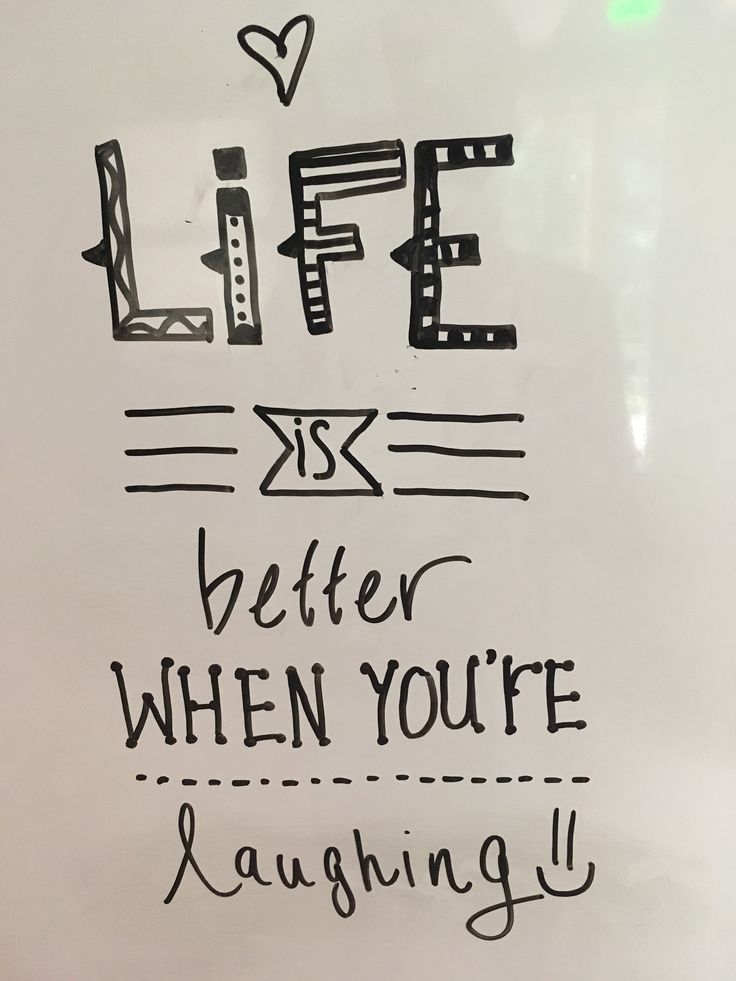 LiFE
is
better
WHEN YOU'rE
laughing